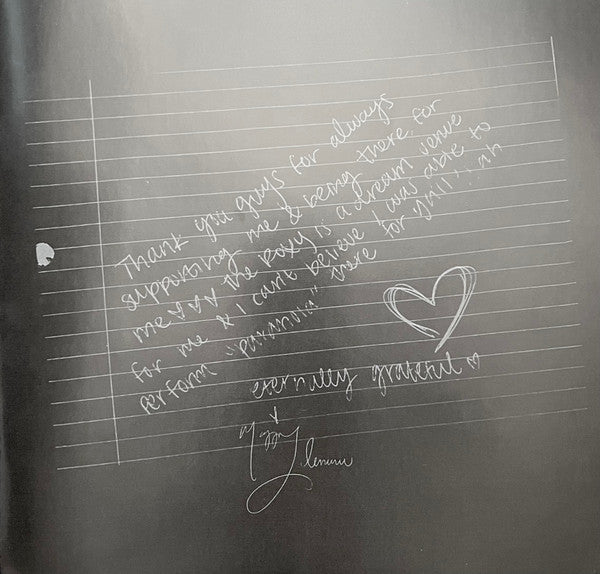 Thank you guys for always
supporting me & being there for
me ♡♡♡ the Roxy is a dream venue
for me & I can't believe I was able to
perform "paranoia" there for y'all!! ah
eternally grateful ♡
Maggie